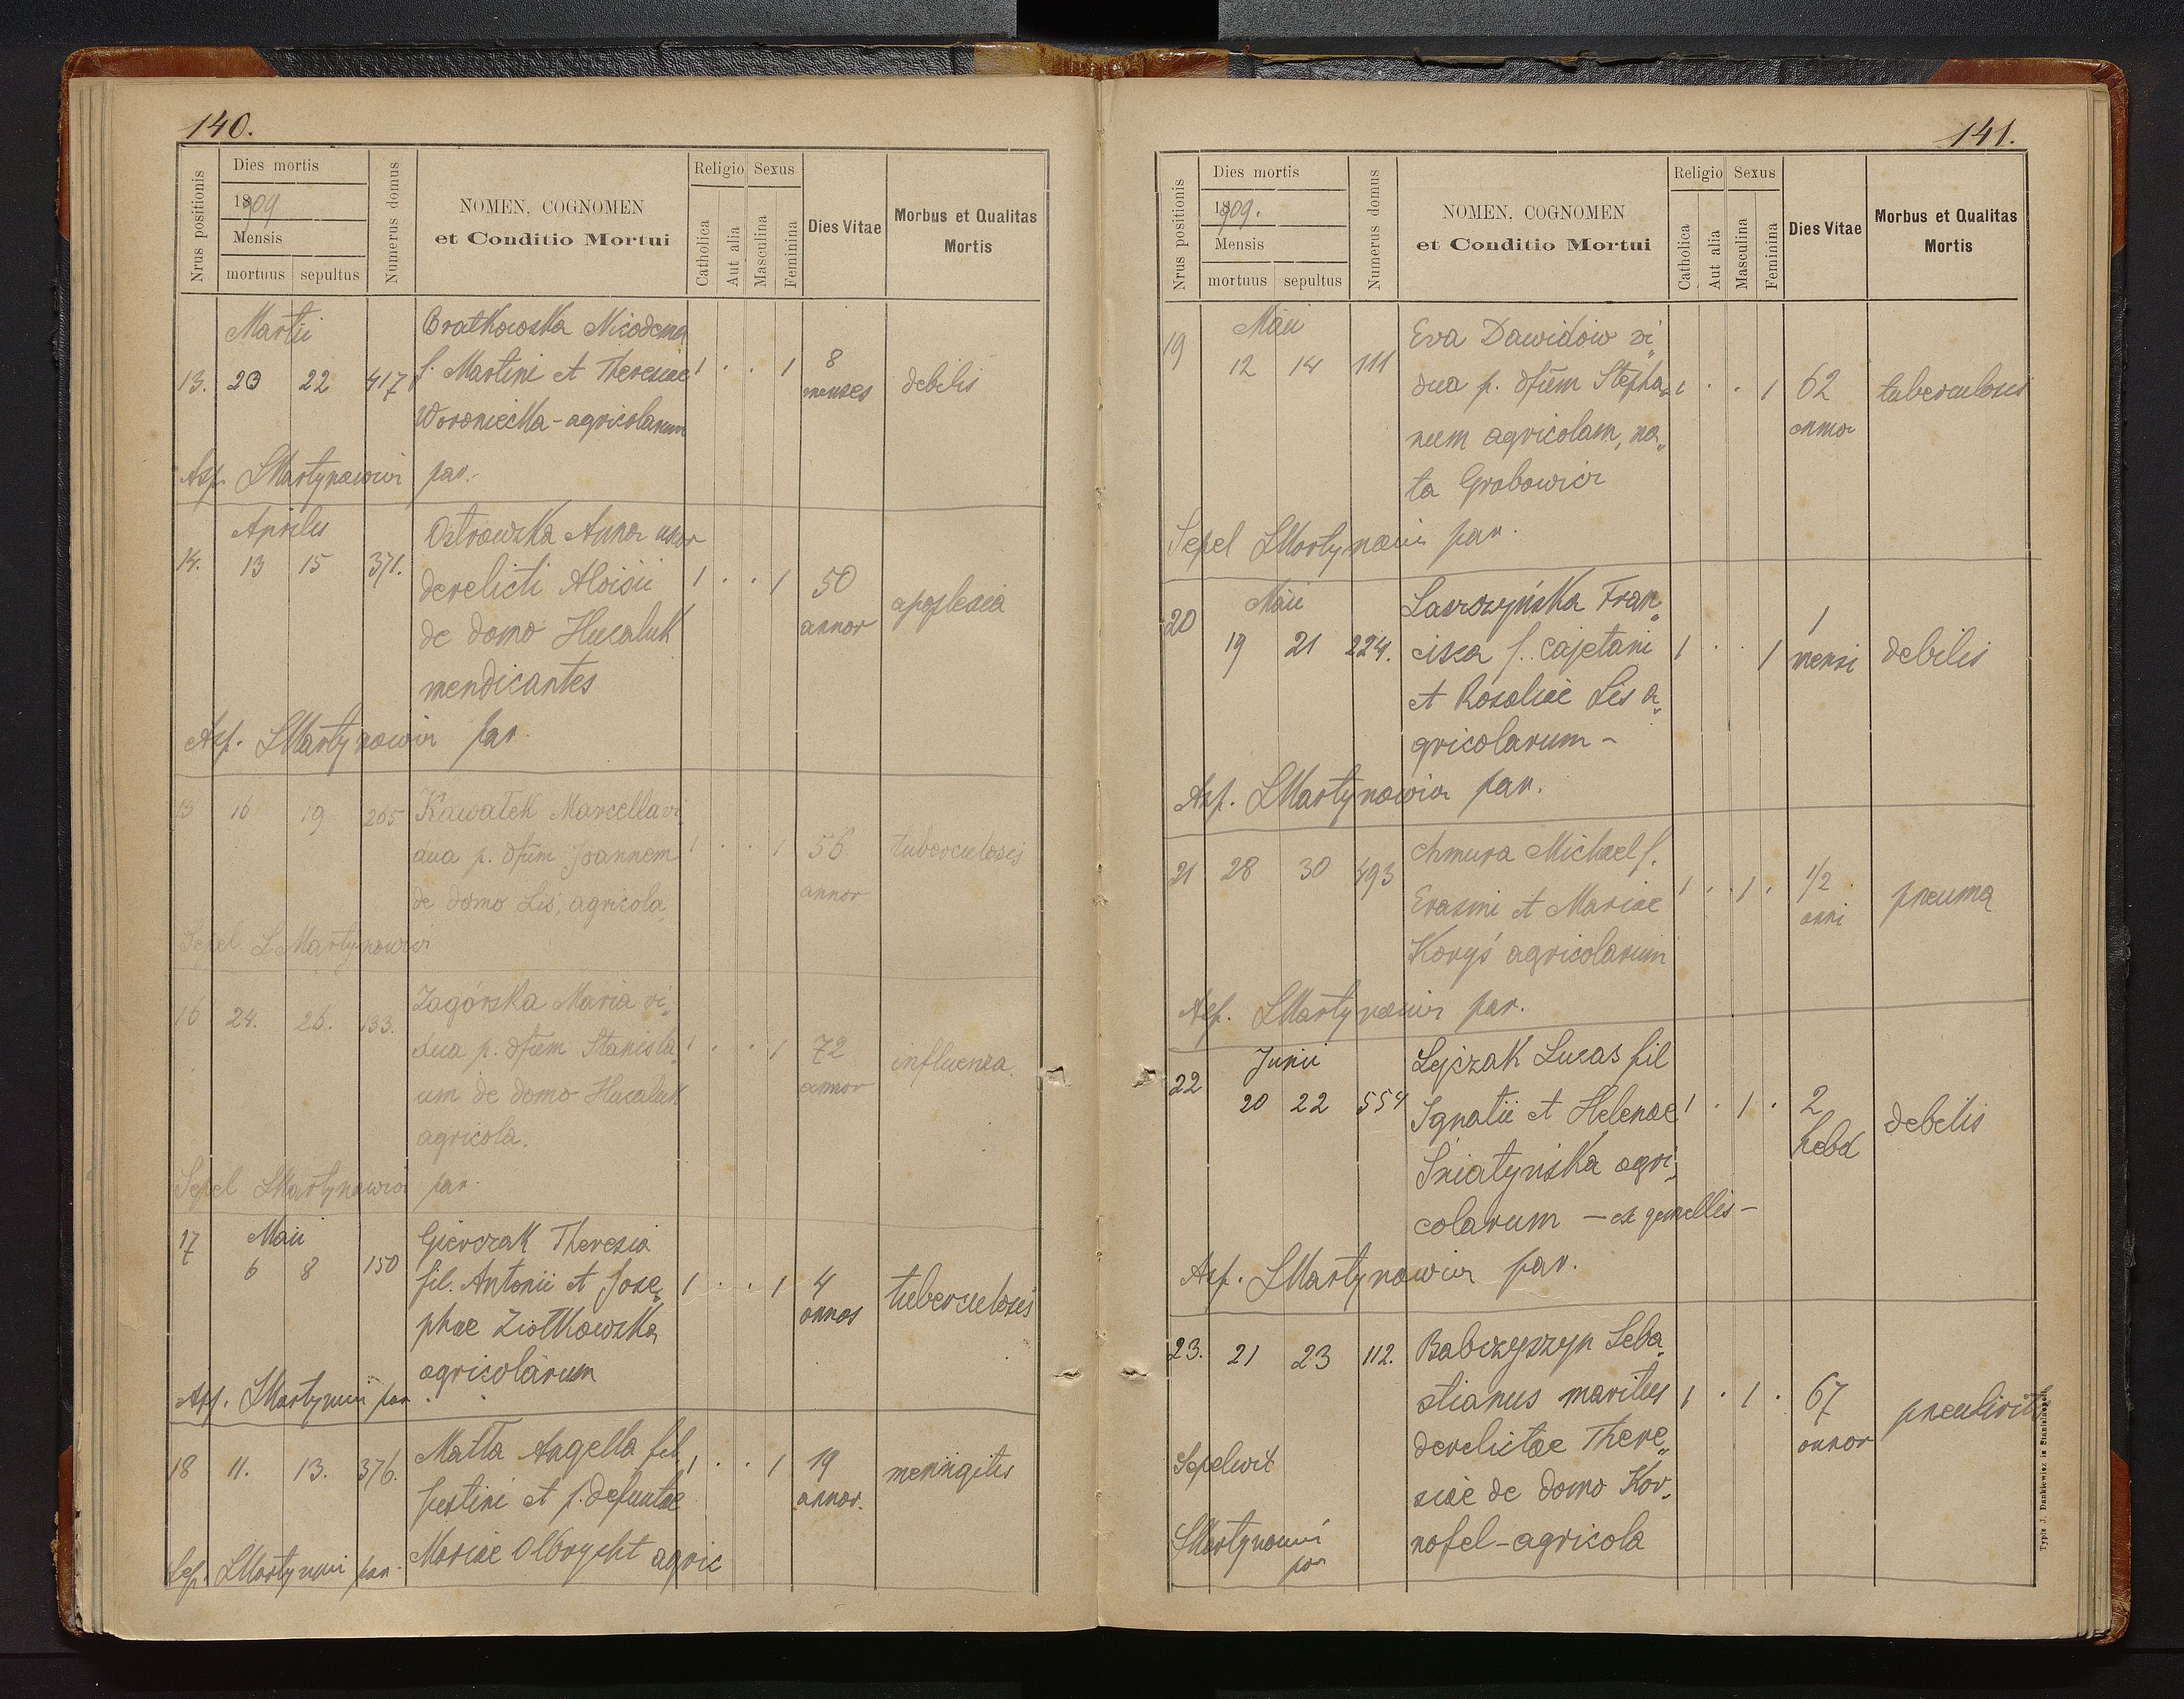 140.
Nrus positionis
Dies mortis
1909
Mensis
mortuus sepultus
Numerus domus
NOMEN, COGNOMEN
et Conditio Mortui
Religio Sexus
Catholica
Aut alia
Masculina
Feminina
Dies Vitae
Morbus et Qualitas
Mortis
Martii
Bratkowska Nicodema
13. 20 22 417 f. Martini et Theresiae 1 . . 1 8 menses debilis
Woroniecka - agricolarum
Asp. LMartynowicz par.
Aprilis
Ostrowska Anna uxor
14. 13 15 371. derelicti Aloisii 1 . . 1 50 annor apoplexia
de domo Hucaluk
mendicantes
Asp. LMartynowicz par.
15 16 19 265 Kawałek Marcella vi
dua p. dfum Joannem 1 . . 1 56 annor tuberculosis
de domo Lis, agricola
Sepel. LMartynowicz
16 24. 26. 133. Zagórska Maria vi„
dua p. dfum Stanisla„ 1 . . 1 72 annor influenza
um de domo Hucaluk
agricola.
Sepel LMartynowicz par.
17 Maii Gierczak Theresia
6 8 150 fil. Antonii et Jose„ 1 . . 1 4 annos tuberculosis
phae Ziołkowska
agricolarum
Asp. LMartynowicz par.
18 11. 13. 376. Matła Angella fil. 1 . . 1 19 annor. meningitis
Justini et p. defuntae
Mariae Olbrycht agric
Sep. LMartynowicz par.
141.
Nrus positionis
Dies mortis
1909.
Mensis
mortuus sepultus
Numerus domus
NOMEN, COGNOMEN
et Conditio Mortui
Religio Sexus
Catholica
Aut alia
Masculina
Feminina
Dies Vitae
Morbus et Qualitas
Mortis
19 Maii Eva Dawidów vi„
12 14 111 dua p. dfum Stepha„ 1 . . 1 62 annor tuberculosis
num agricolam, na„
ta Grabowicz
Sepel LMartynowicz par.
20 Maii Lawrzyńska Fran„
19 21 224. cisca f. Cajetani 1 . . 1 1 mensi debilis
et Rosaliae Lis a„
gricolarum -
Asp. LMartynowicz par.
21 28 30 493 Chmura Michael f.
Erasmi et Mariae 1 . 1 . 1/2 anni pneuma
Koryś agricolarum
Asp. LMartynowicz par.
22 Junii Lejczak Lucas fil
20 22 554 Ignatii et Helenae 1 . 1 . 2 hebd debilis
Sniatyńska agri„
colarum - ex gemellis -
Asp. LMartynowicz par.
23. 21 23 112. Babczyszyn Seba„
stianus maritus 1 . 1 . 67 annor
derelictae There„
siae de domo Kor„
nofel - agricola
Sepelivit
LMartynowicz
par
Typis J. Dankiewicz in Stanislau